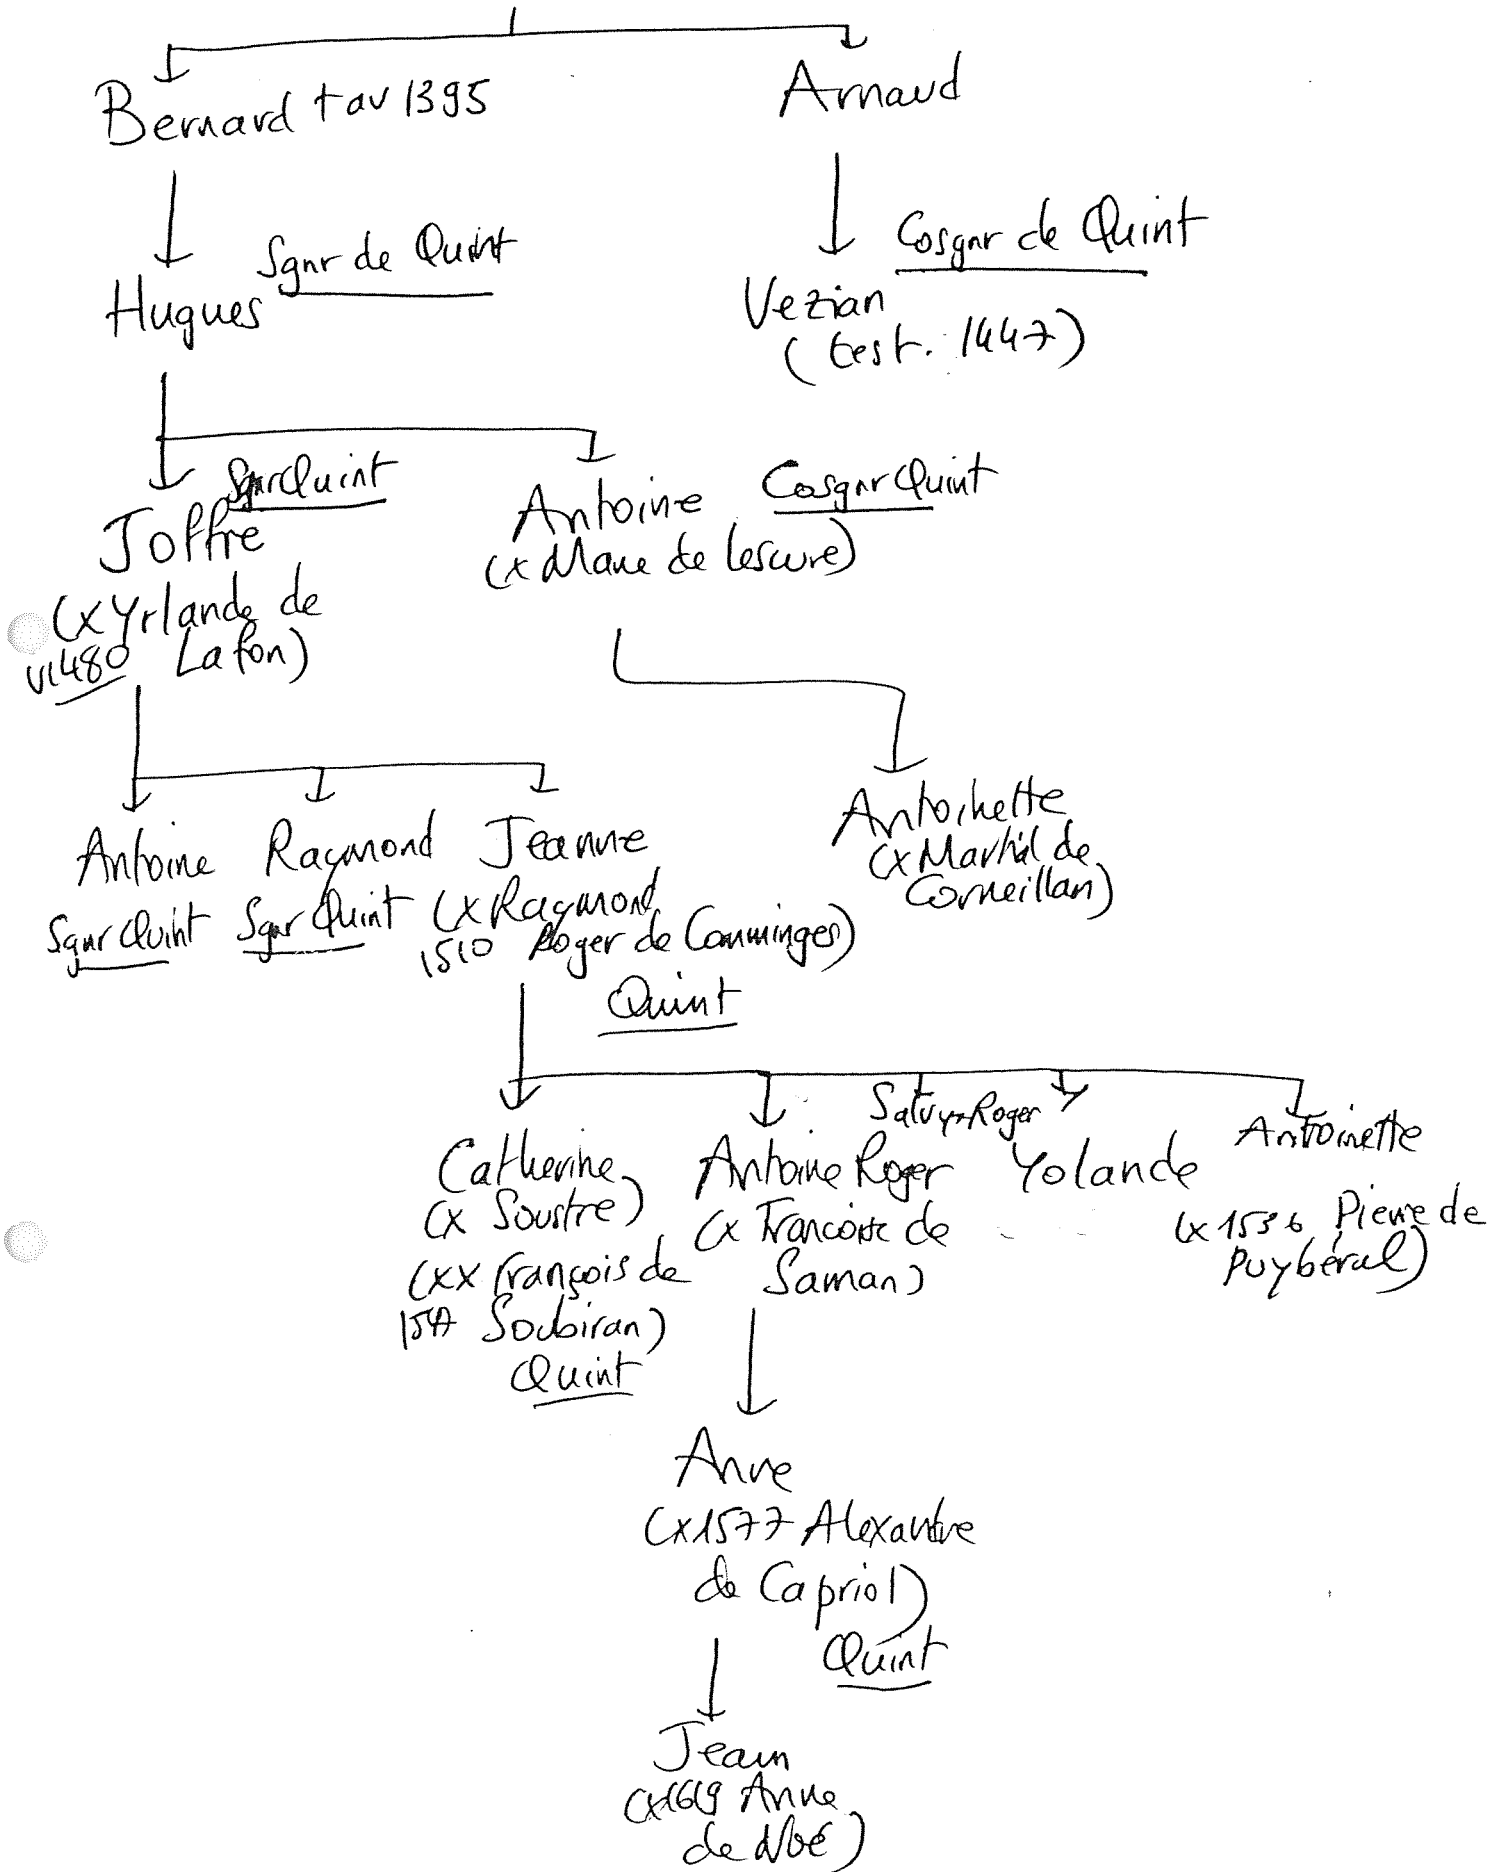 Bernard + av 1395
Arnaud
Hugues
Sgnr de Quint
Cosgnr de Quint
Vezian
(test. 1447)
Joffre
Sgnr Quint
(x Yrlande de
v1480 Lafon)
Antoine
Cosgnr Quint
(x Marie de Lescure)
Antoine
Sgnr Quint
Raymond
Sgnr Quint
Jeanne
(x Raymond
1510 Roger de Comminges)
Quint
Antoinette
(x Martial de
Corneillan)
Catherine
(x Soustre)
(xx François de
Soubiran)
Quint
Antoine Roger
(x Francoise de
Saman)
Roger
Yolande
Antoinette
(x 1536 Pierre de
Puybéral)
Anne
(x 1577 Alexandre
de Capriol)
Quint
Jean
(x 1619 Anne
de Noé)